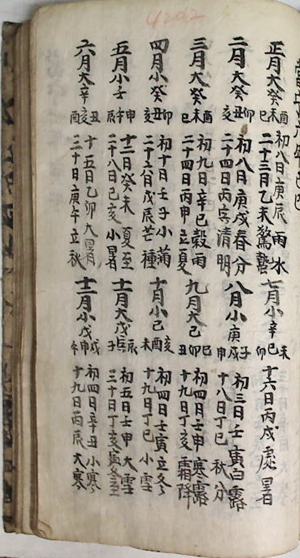 4202
正月大癸酉未巳 初八日庚辰雨水
二十三日乙未驚蟄
二月大癸卯丑亥 初八日庚戌春分
二十四日丙寅清明
三月大癸酉未巳 初九日辛巳穀雨
二十四日丙申立夏
四月小癸卯丑亥 初十日壬子小滿
二十六日戊辰芒種
五月小壬申午辰 十二日癸未夏至
二十八日己亥小暑
六月大辛丑亥酉 十五日乙卯大暑
三十日庚午立秋
七月小辛未巳卯 十六日丙戌處暑
八月小庚子戌申 初三日壬寅白露
十八日丁巳秋分
九月大己巳卯丑 初四日壬申寒露
十九日丁亥霜降
十月小己亥酉未 初四日壬寅立冬
十九日丁巳小雪
十一月大戊辰寅子 初五日壬申大雪
日丁亥冬至
十二月小戊戌申午 初四日辛丑小寒
十九日丙辰大寒